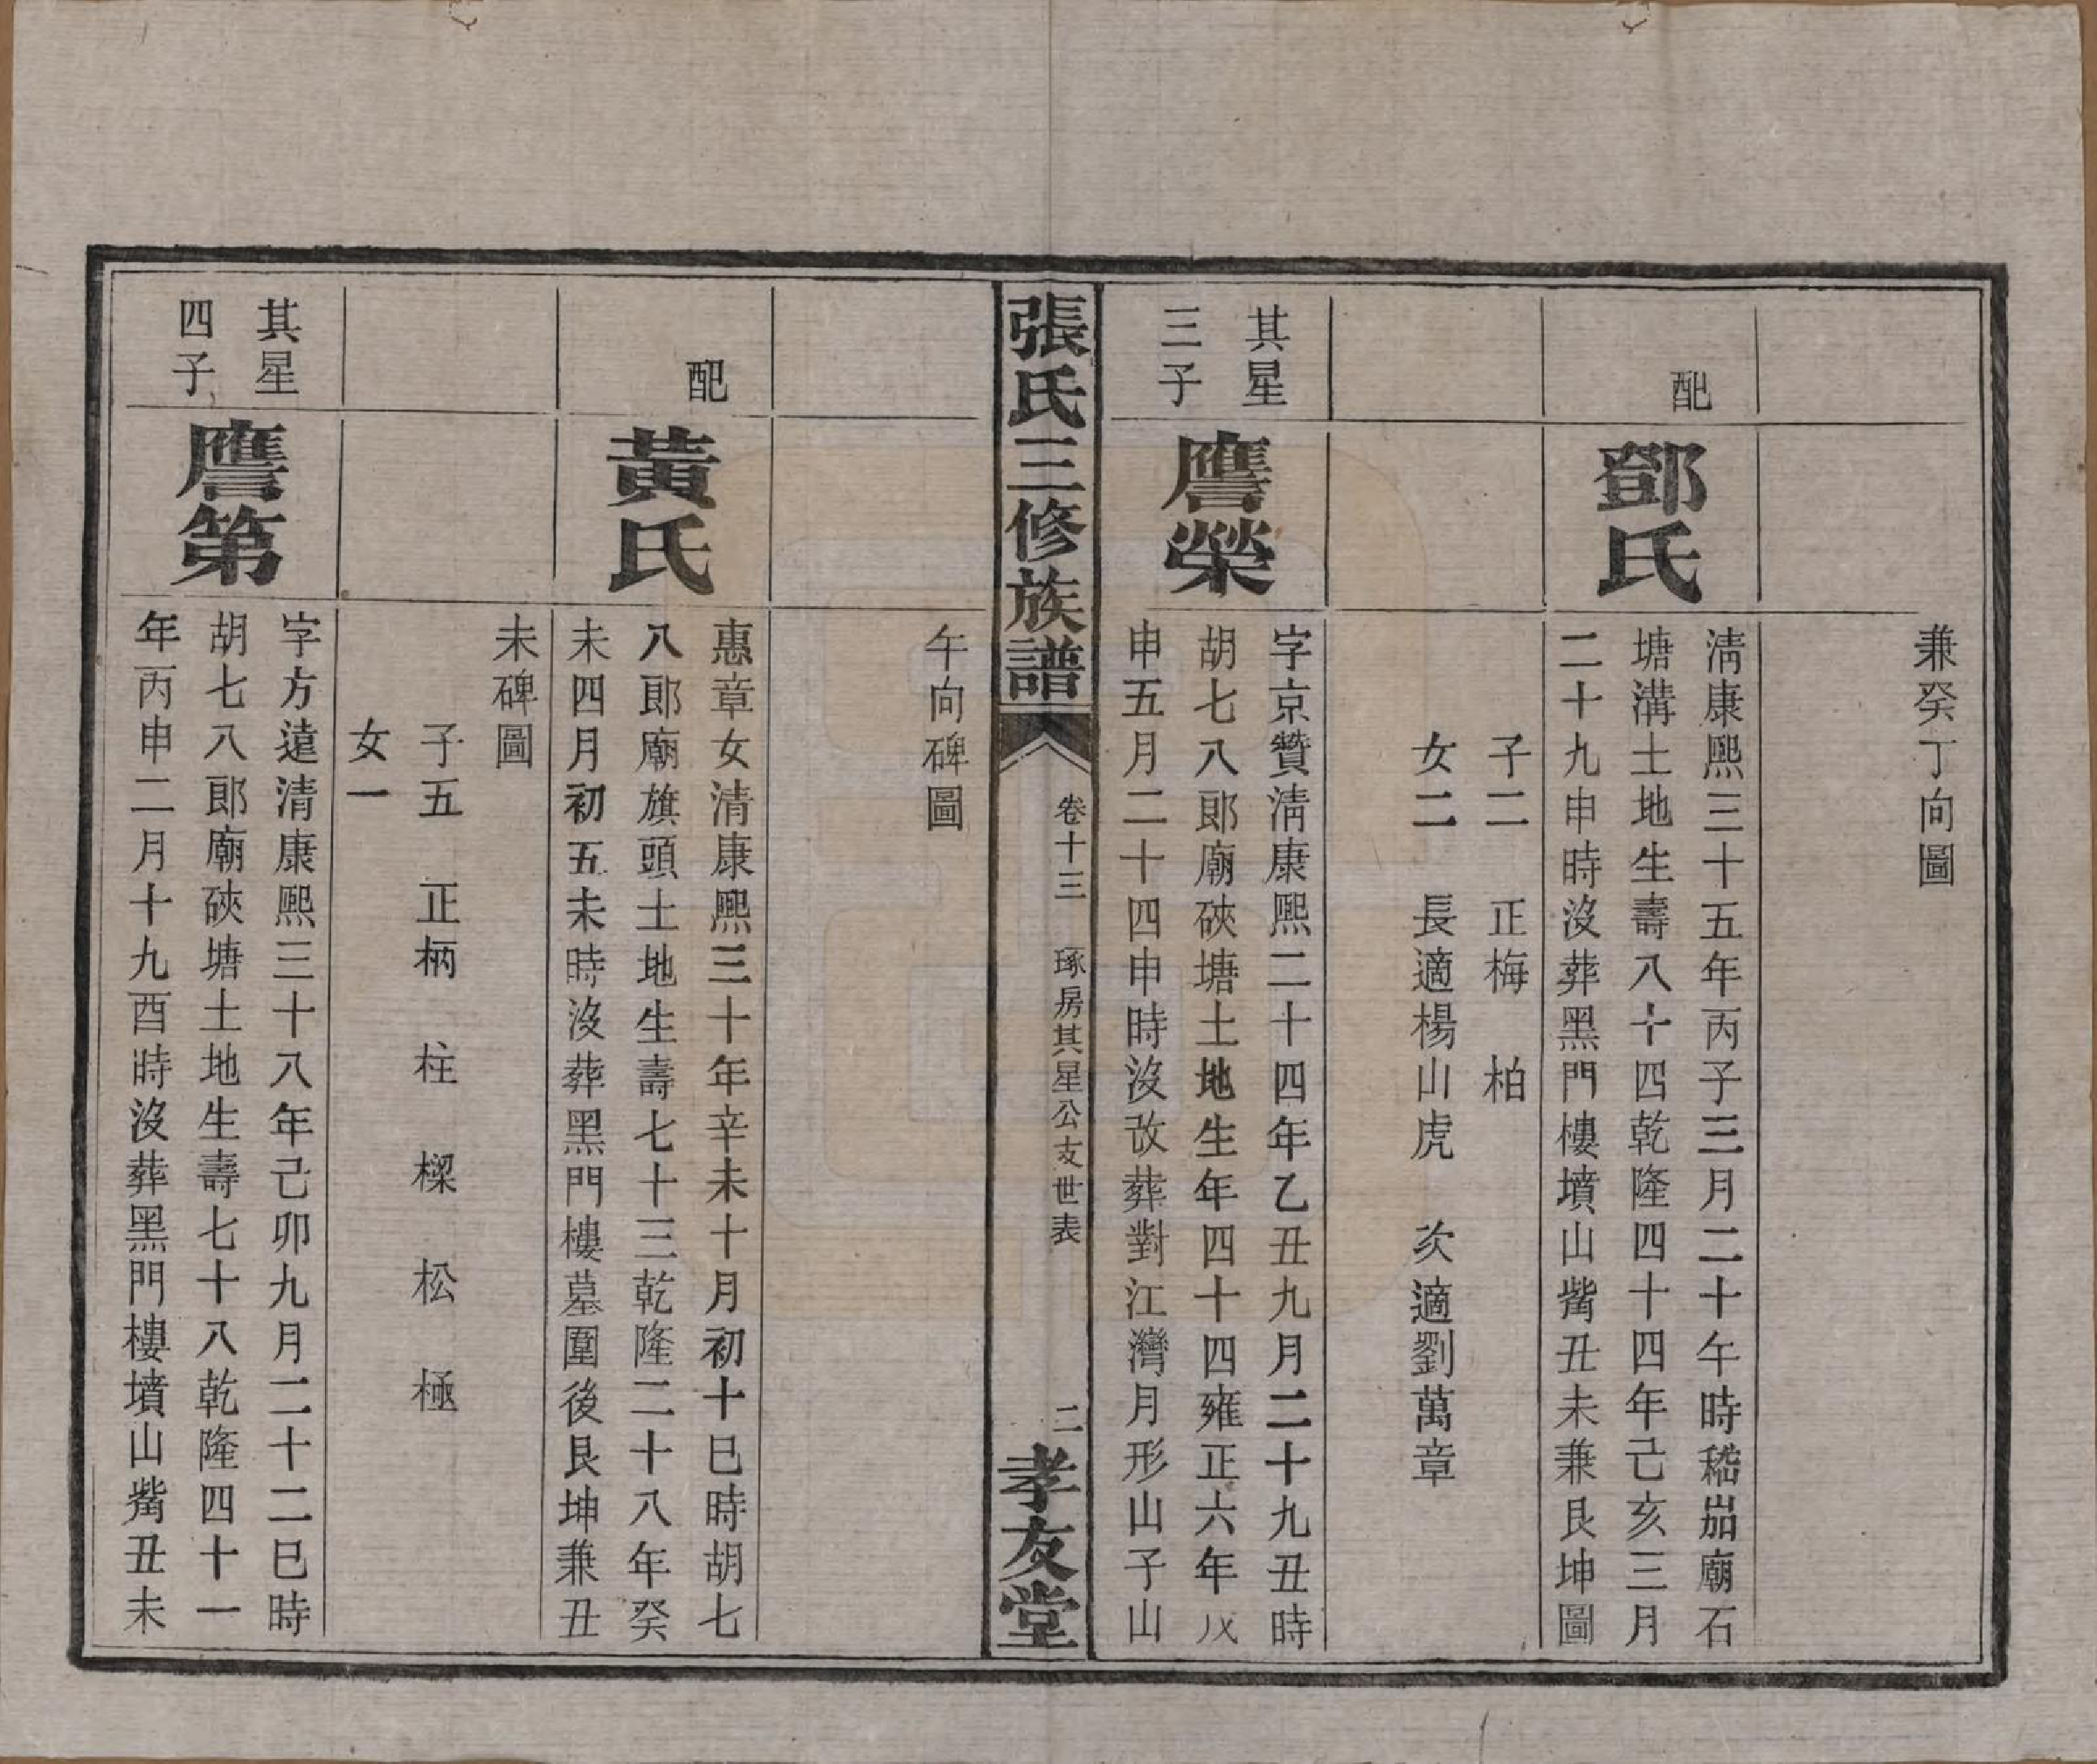 兼癸丁向圖
配
鄧氏
清康熙三十五年丙子三月二十午時嵇茄廟石
塘溝土地生壽八十四乾隆四十四年己亥三月
二十九申時沒葬黑門樓墳山觜丑未兼艮坤圖
子二　正梅　柏
女二　長適楊山虎　次適劉萬章
其星
三子
譍榮
字京贊清康熙二十四年乙丑九月二十九丑時
胡七八郎廟硤塘土地生年四十四雍正六年戊
申五月二十四申時沒改葬對江灣月形山子山
張氏三修族譜
卷十三　琢房其星公支世表
二
孝友堂
午向碑圖
配
黃氏
惠章女清康熙三十年辛未十月初十巳時胡七
八郎廟旗頭土地生壽七十三乾隆二十八年癸
未四月初五未時沒葬黑門樓墓圍後艮坤兼丑
未碑圖
子五　正柄　柱　樑　松　極
女一
其星
四子
譍第
字方遠清康熙三十八年己卯九月二十二巳時
胡七八郎廟硤塘土地生壽七十八乾隆四十一
年丙申二月十九酉時沒葬黑門樓墳山觜丑未